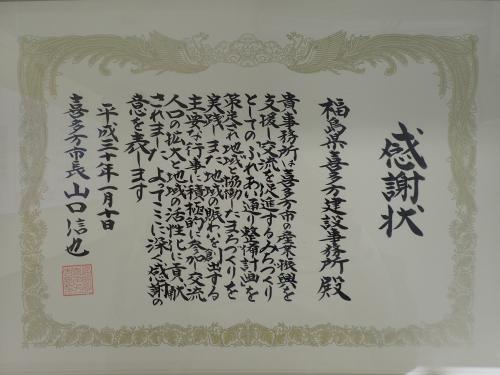 感謝状
福島県喜多方建設事務所 殿
貴事務所は喜多方市の産業振興を
支援し交流を促進するみちづくり
としてのふれあい通り整備計画を
策定され地域と協働したまちづくりを
実践しまた地域の賑わいを創出する
主要な行事に積極的に参加し交流
人口の拡大と地域の活性化に貢献
されました よってここに深く感謝の
意を表します
平成三十年一月十日
喜多方市長 山口信也